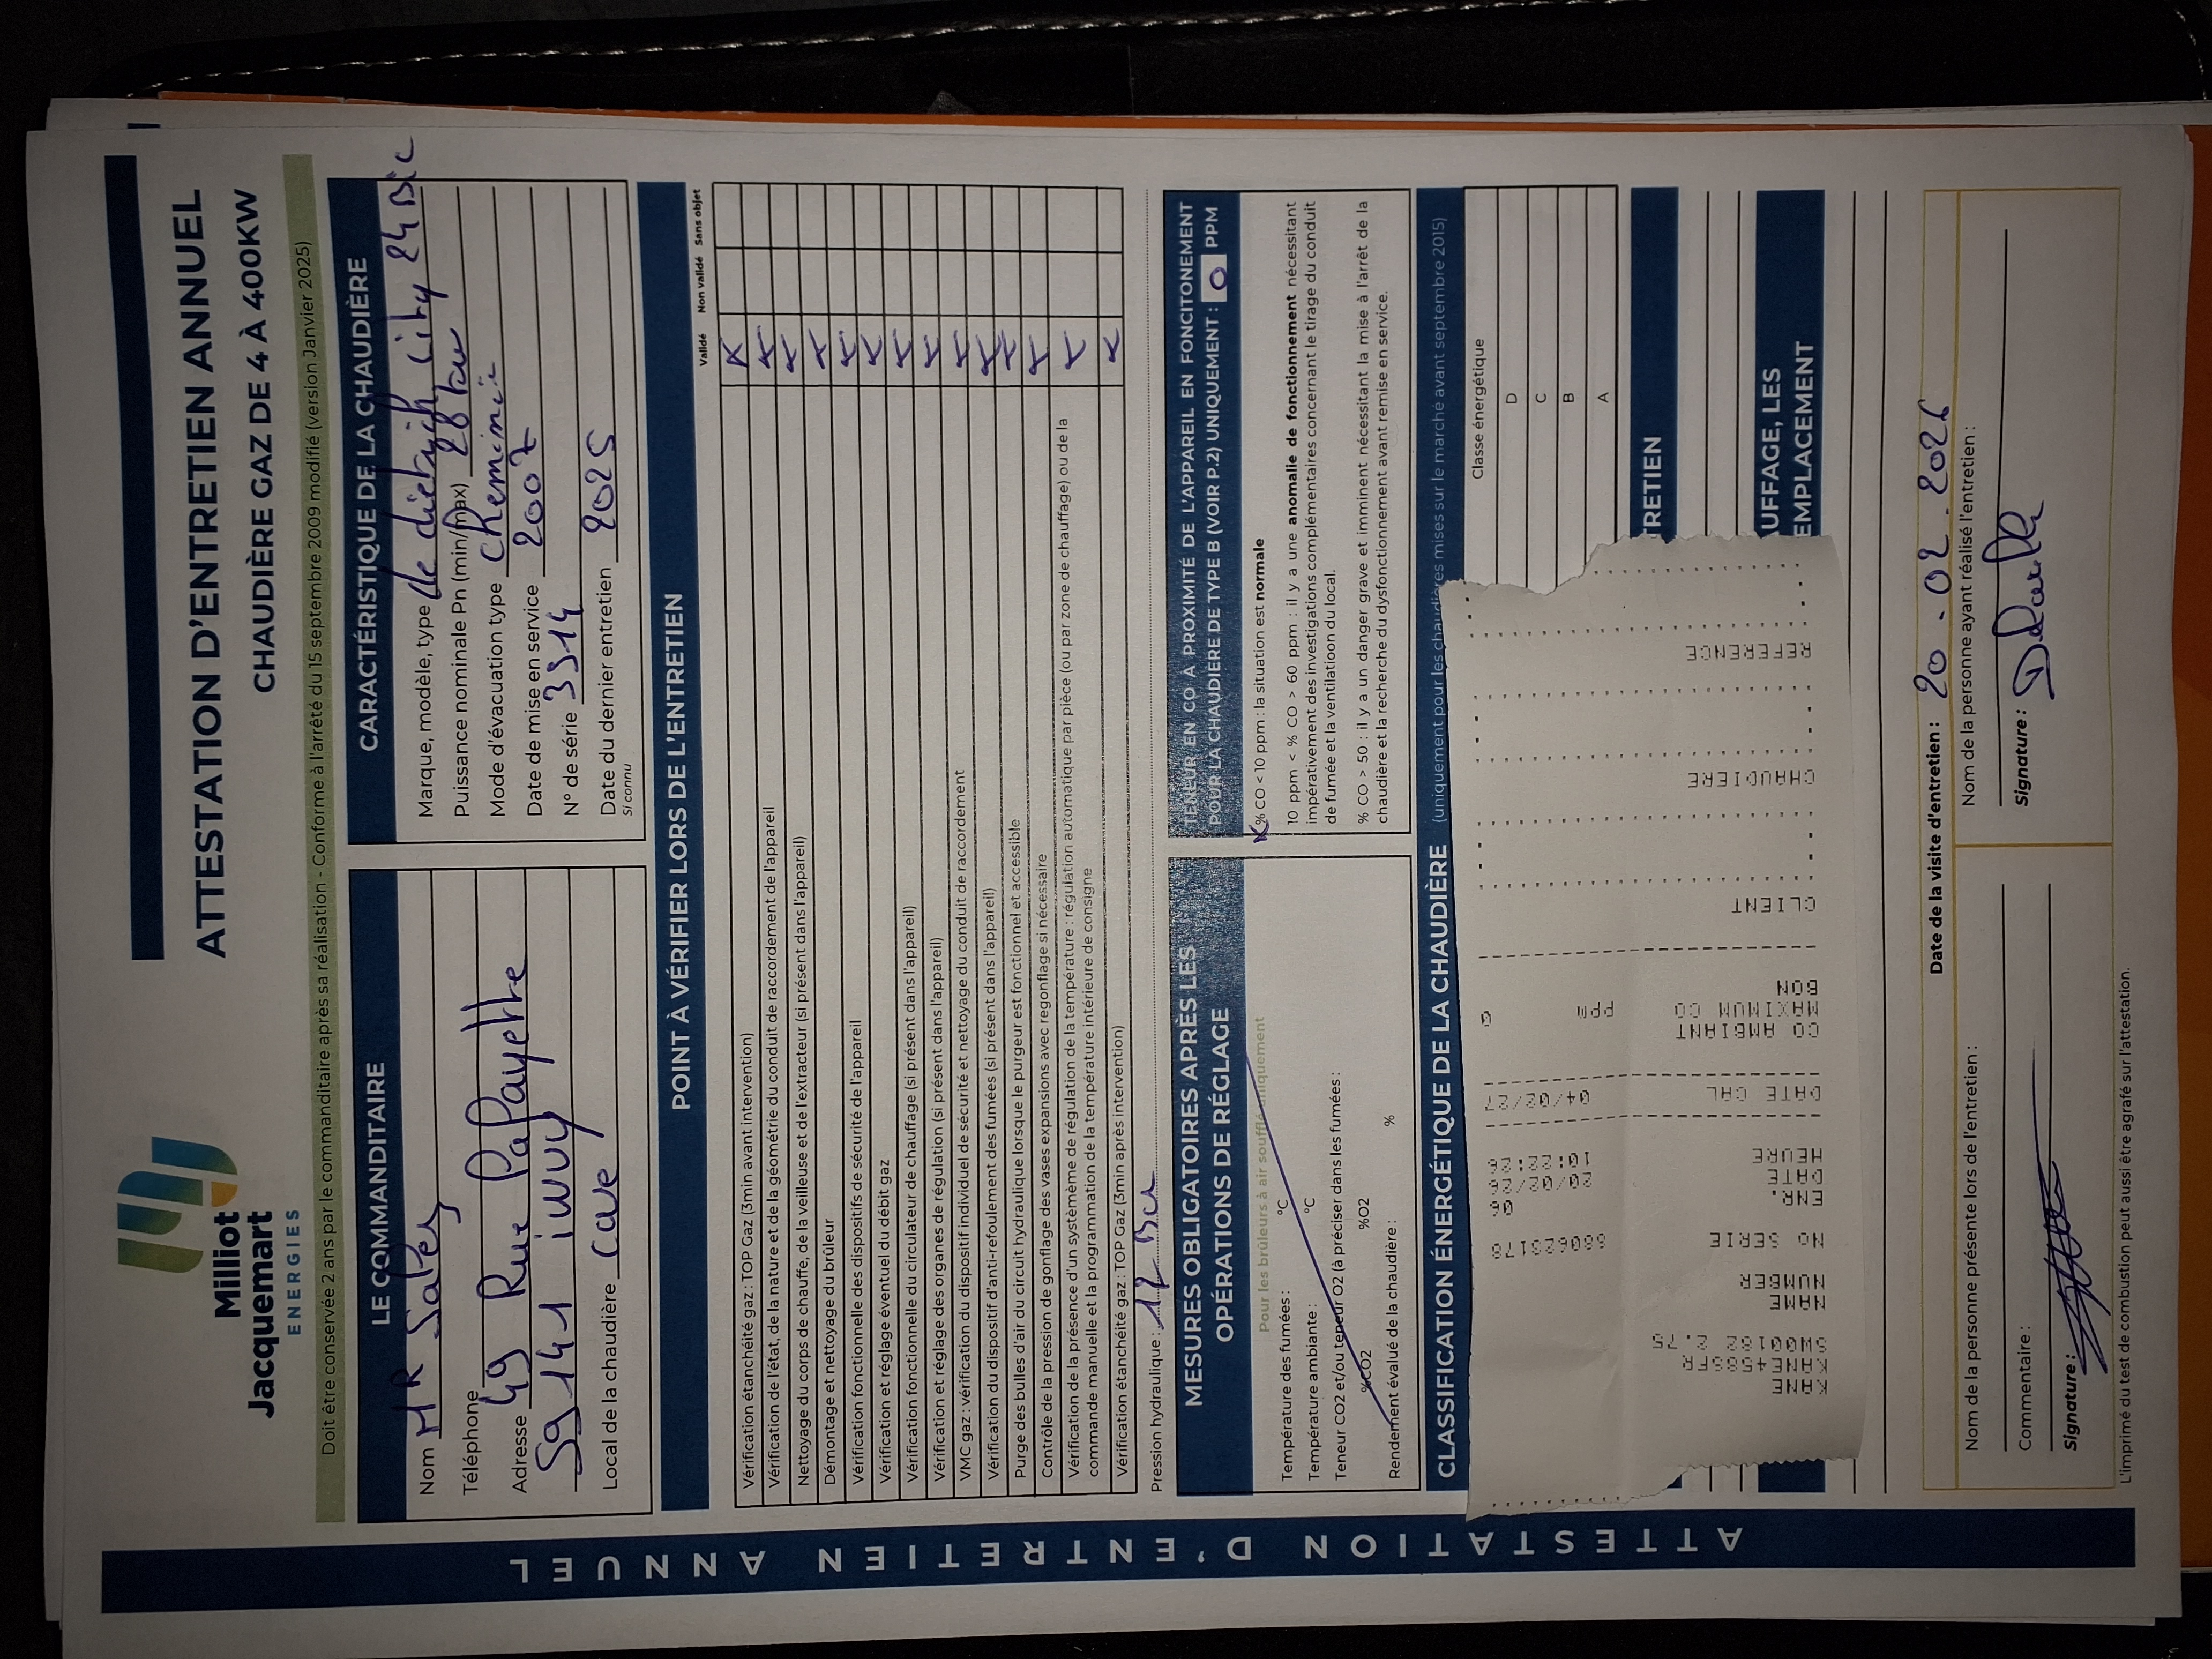 Milliot
Jacquemart
ENERGIES
ATTESTATION D'ENTRETIEN ANNUEL
CHAUDIÈRE GAZ DE 4 À 400KW
Doit être conservée 2 ans par le commanditaire après sa réalisation - Conforme à l'arrêté du 15 septembre 2009 modifié (version Janvier 2025)
ATTESTATION D'ENTRETIEN ANNUEL
LE COMMANDITAIRE
Nom MR
Téléphone
Adresse 49 Rue
59141 iwuy
Local de la chaudière cave
CARACTÉRISTIQUE DE LA CHAUDIÈRE
Marque, modèle, type de dietrich city 24 Bic
Puissance nominale Pn (min/max) 28 kw
Mode d'évacuation type cheminée
Date de mise en service 2007
N° de série 3314
Date du dernier entretien 2025
Si connu
POINT À VÉRIFIER LORS DE L'ENTRETIEN
Validé Non validé Sans objet
Vérification étanchéité gaz : TOP Gaz (3min avant intervention) X
Vérification de l'état, de la nature et de la géométrie du conduit de raccordement de l'appareil X
Nettoyage du corps de chauffe, de la veilleuse et de l'extracteur (si présent dans l'appareil) X
Démontage et nettoyage du brûleur X
Vérification fonctionnelle des dispositifs de sécurité de l'appareil X
Vérification et réglage éventuel du débit gaz X
Vérification fonctionnelle du circulateur de chauffage (si présent dans l'appareil) X
Vérification et réglage des organes de régulation (si présent dans l'appareil) X
VMC gaz : vérification du dispositif individuel de sécurité et nettoyage du conduit de raccordement X
Vérification du dispositif d'anti-refoulement des fumées (si présent dans l'appareil) X
Purge des bulles d'air du circuit hydraulique lorsque le purgeur est fonctionnel et accessible X
Contrôle de la pression de gonflage des vases expansions avec regonflage si nécessaire X
Vérification de la présence d'un systmème de régulation de la température : régulation automatique par pièce (ou par zone de chauffage) ou de la
commande manuelle et la programmation de la température intérieure de consigne X
Vérification étanchéité gaz : TOP Gaz (3min après intervention) X
Pression hydraulique :
MESURES OBLIGATOIRES APRÈS LES
OPÉRATIONS DE RÉGLAGE
Pour les brûleurs à air soufflé uniquement
Température des fumées : °C
Température ambiante : °C
Teneur CO2 et/ou teneur O2 (à préciser dans les fumées) :
%CO2 %O2
Rendement évalué de la chaudière : %
TENEUR EN CO A PROXIMITÉ DE L'APPAREIL EN FONCITONEMENT
POUR LA CHAUDIÈRE DE TYPE B (VOIR P.2) UNIQUEMENT : 0 PPM
X % CO < 10 ppm : la situation est normale
10 ppm < % CO > 60 ppm : il y a une anomalie de fonctionnement nécessitant
impérativement des investigations complémentaires concernant le tirage du conduit
de fumée et la ventilatioon du local.
% CO > 50 : il y a un danger grave et imminent nécessitant la mise à l'arrêt de la
chaudière et la recherche du dysfonctionnement avant remise en service.
CLASSIFICATION ÉNERGÉTIQUE DE LA CHAUDIÈRE (uniquement pour les chaudières mises sur le marché avant septembre 2015)
Classe énergétique
D
C
B
A
TRETIEN
UFFAGE, LES
EMPLACEMENT
KANE
KANE458SFR
SW00182 2.75
NAME
NUMBER
NO SERIE 680623178
ENR. 06
DATE 20/02/26
HEURE 10:22:26
DATE CAL 04/02/27
CO AMBIANT
MAXIMUM CO PPM 0
BON
CLIENT
CHAUDIERE
REFERENCE
Date de la visite d'entretien : 20.02.2026
Nom de la personne présente lors de l'entretien :
Commentaire :
Signature :
Nom de la personne ayant réalisé l'entretien :
Signature :
L'imprimé du test de combustion peut aussi être agrafé sur l'attestation.